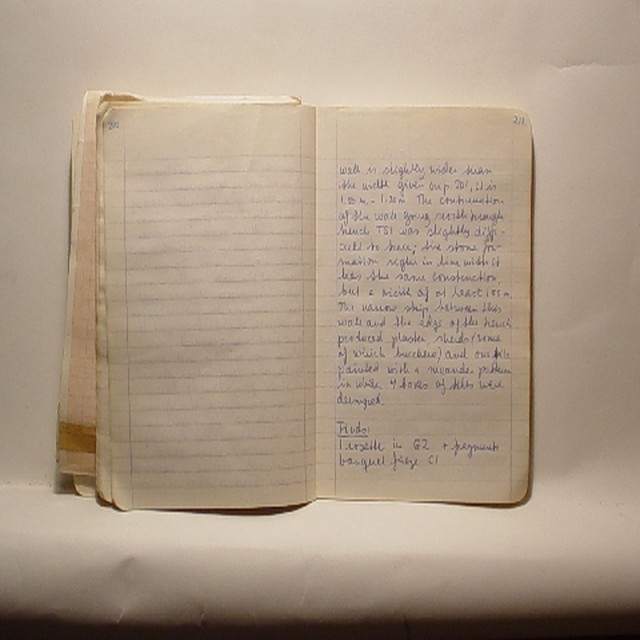 211
wall is slightly wider than
the width given on p. 201, it is
1.20 m. The continuation
of the wall going south through
trench TS1 was slightly diffi-
cult to trace; the stone for-
mation right in line with it
has the same construction,
but a width of at least 1.85 m.
The narrow strip between this
wall and the edge of the trench
produced plaster, sherds (some
of which bucchero) and one tile
painted with a meander pattern
in white. 4 boxes of tiles were
dumped.
Finds:
1 rosette in G2 + fragments
banquet frieze C1